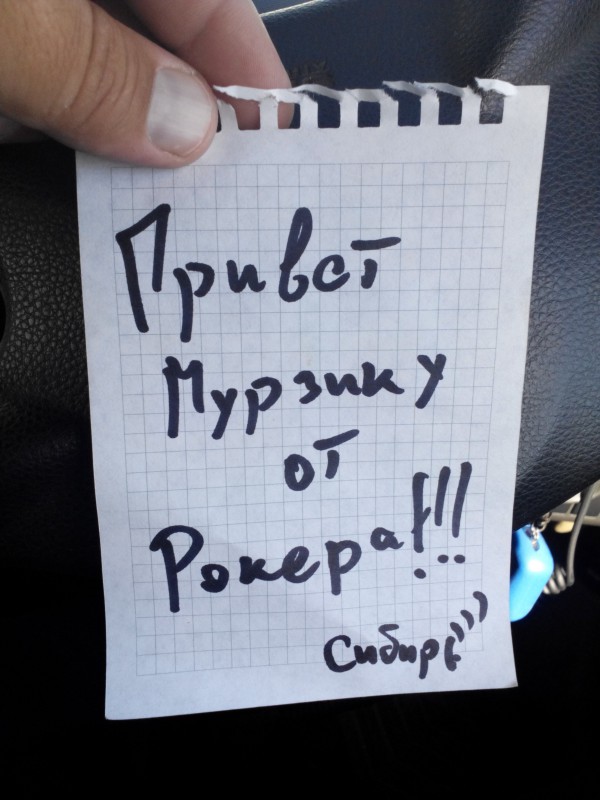 Привет
Мурзику
от
Рокера!!!
Сибирь)))